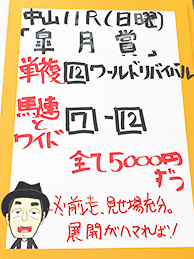 中山11R(日曜)
「皐月賞」
単複 12 ワールドリバイバル
馬連とワイド 7-12
全て5000円ずつ
※前走、見せ場充分。
展開がハマれば!